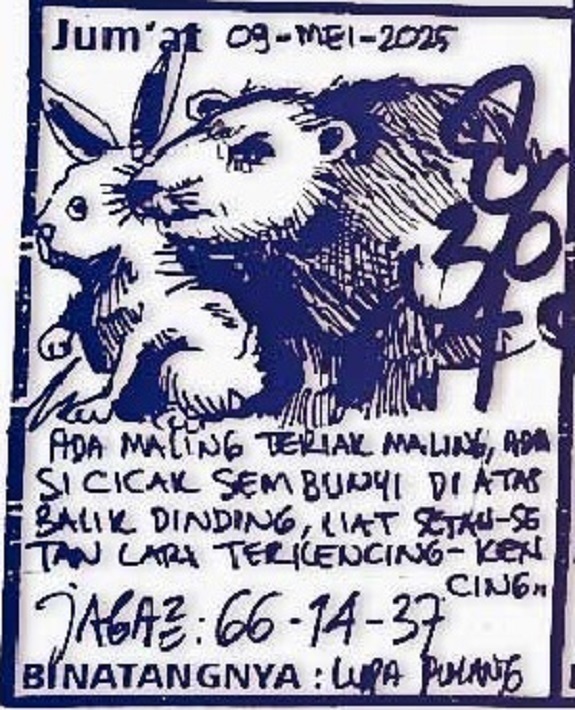 Jum'at 09-MEI-2025
30
ADA MALING TERIAK MALING, ADA
SI CICAK SEMBUNYI DI ATAS
BALIK DINDING, LIAT SETAN-SE
TAN LARI TERKENCING-KEN
CING..
JAGA2: 66-14-37
BINATANGNYA : LUPA PULANG